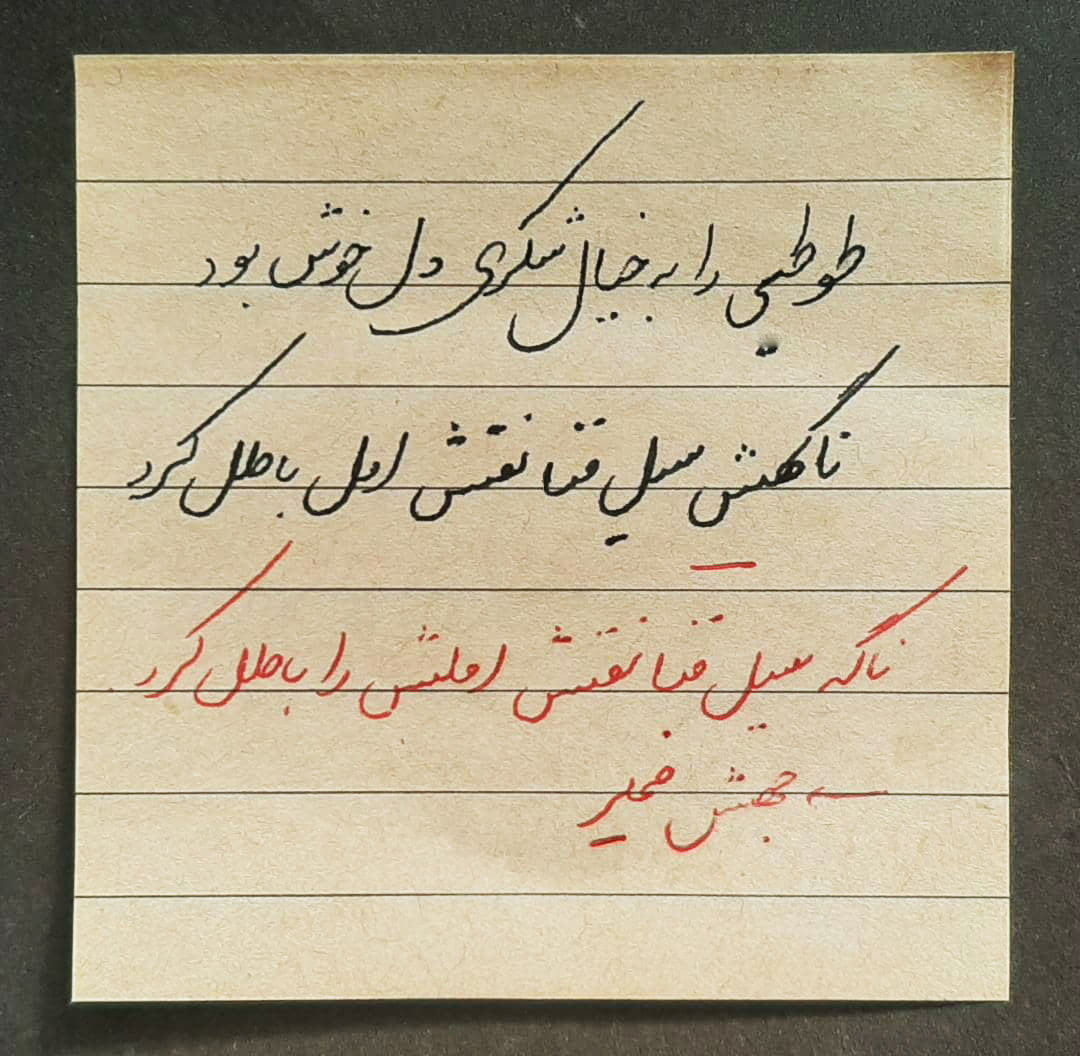 طوطیی را به خیال شکری دل خوش بود
ناگهش سیل فنا نقش امل باطل کرد
ناگه سیل فنا نقش املش را باطل کرد
جهش ضمیر